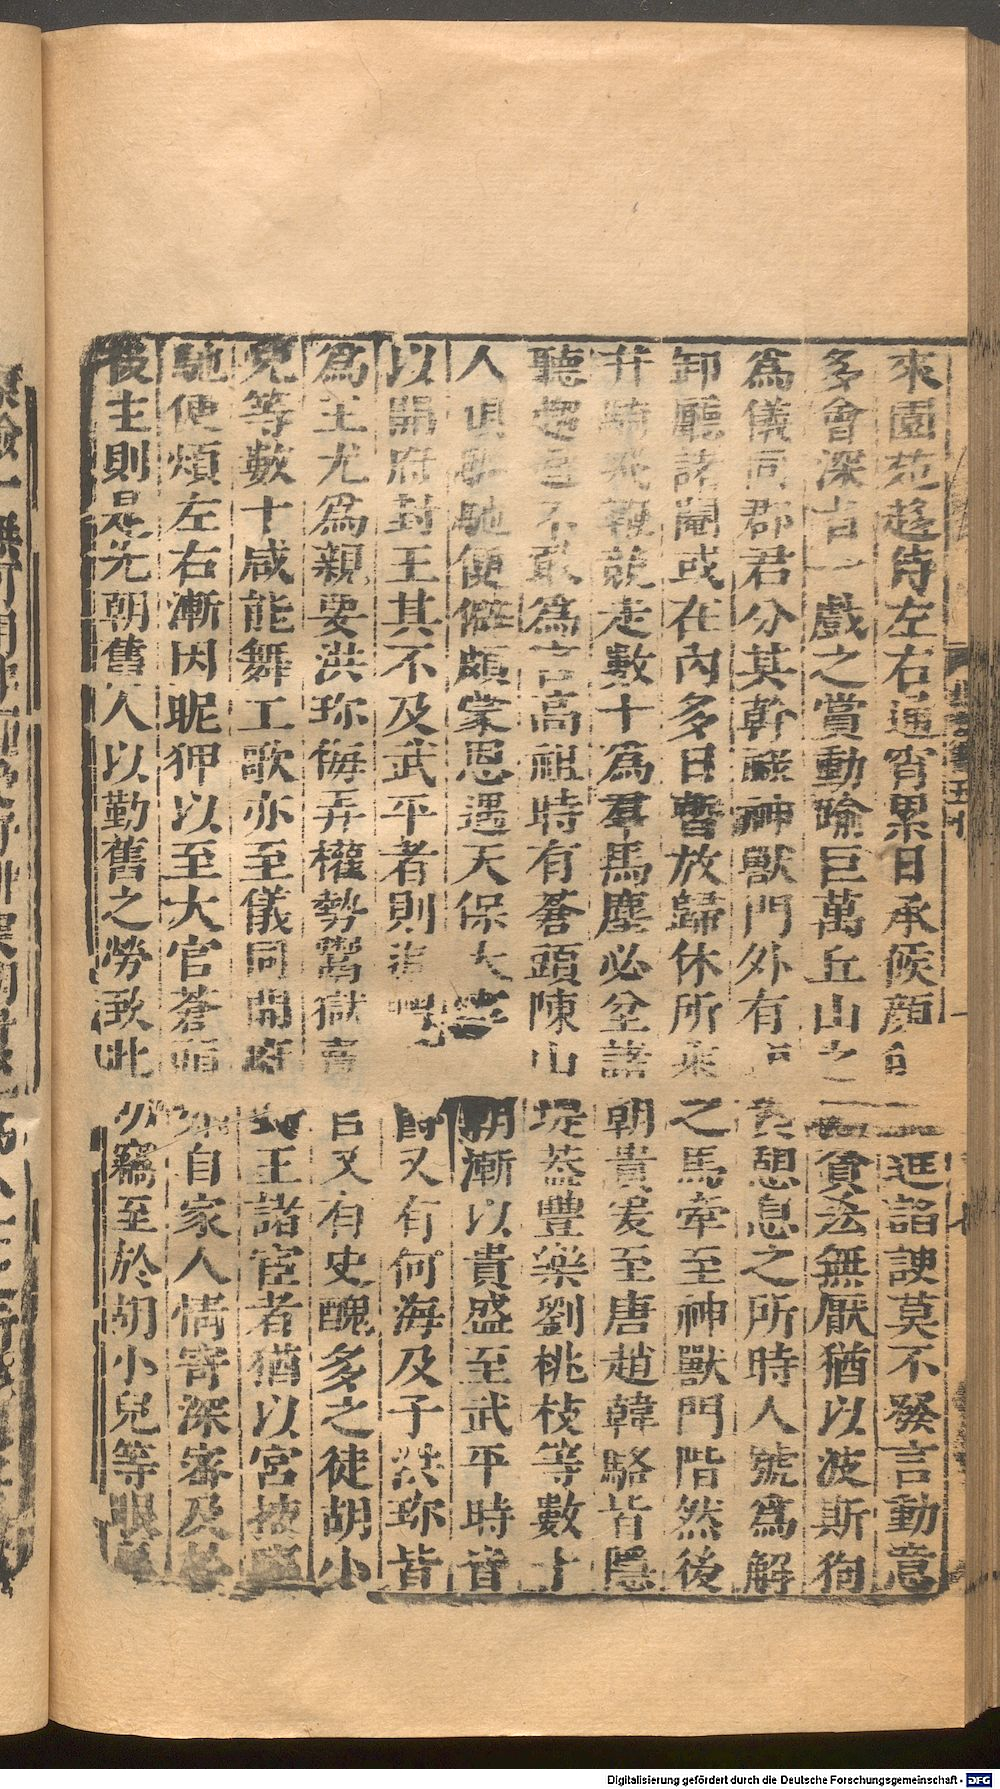 來園苑趍侍左右通宵累日承候顏色進諂諛莫不發言動意
多會深旨一戲之賞動踰巨萬丘山之貪恡無厭猶以波斯狗
爲儀同郡君分其幹祿神獸門外有朝貴憩息之所時人號爲解
卸廳諸閹或在內多日暫放歸休所乘之馬牽至神獸門階然後
升騎飛鞭競走數十爲羣馬塵必坌諸朝貴爰至唐趙韓駱皆隱
聽趨避不敢爲言高祖時有蒼頭陳山提蓋豐樂劉桃枝等數十
人俱驅馳便僻頗蒙恩遇天保大寧朝漸以貴盛至武平時皆
以開府封王其不及武平者則追贈又有何海及子洪珍皆
爲王尤爲親要洪珍侮弄權勢鬻獄賣官又有史醜多之徒胡小
兒等數十咸能舞工歌亦至儀同開府封王諸宦者猶以宮掖
馳便煩左右漸因昵狎以至大官蒼頭自家人情寄深審及於
後主則是先朝舊人以勤舊之勞致此叨竊至於胡小兒等眼